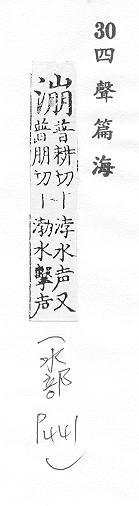 30 四聲篇海
漰 普耕切丨浡水声又
普朋切丨渤水擊声
(水部 P441)